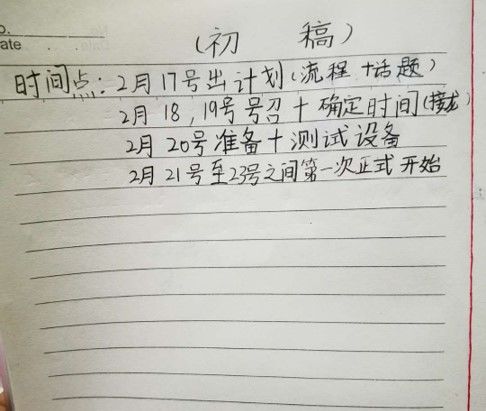 ate
(初 稿)
时间点:2月17号出计划(流程+话题)
2月18,19号号召+确定时间(接龙)
2月20号准备+测试设备
2月21号至23号之间第一次正式开始